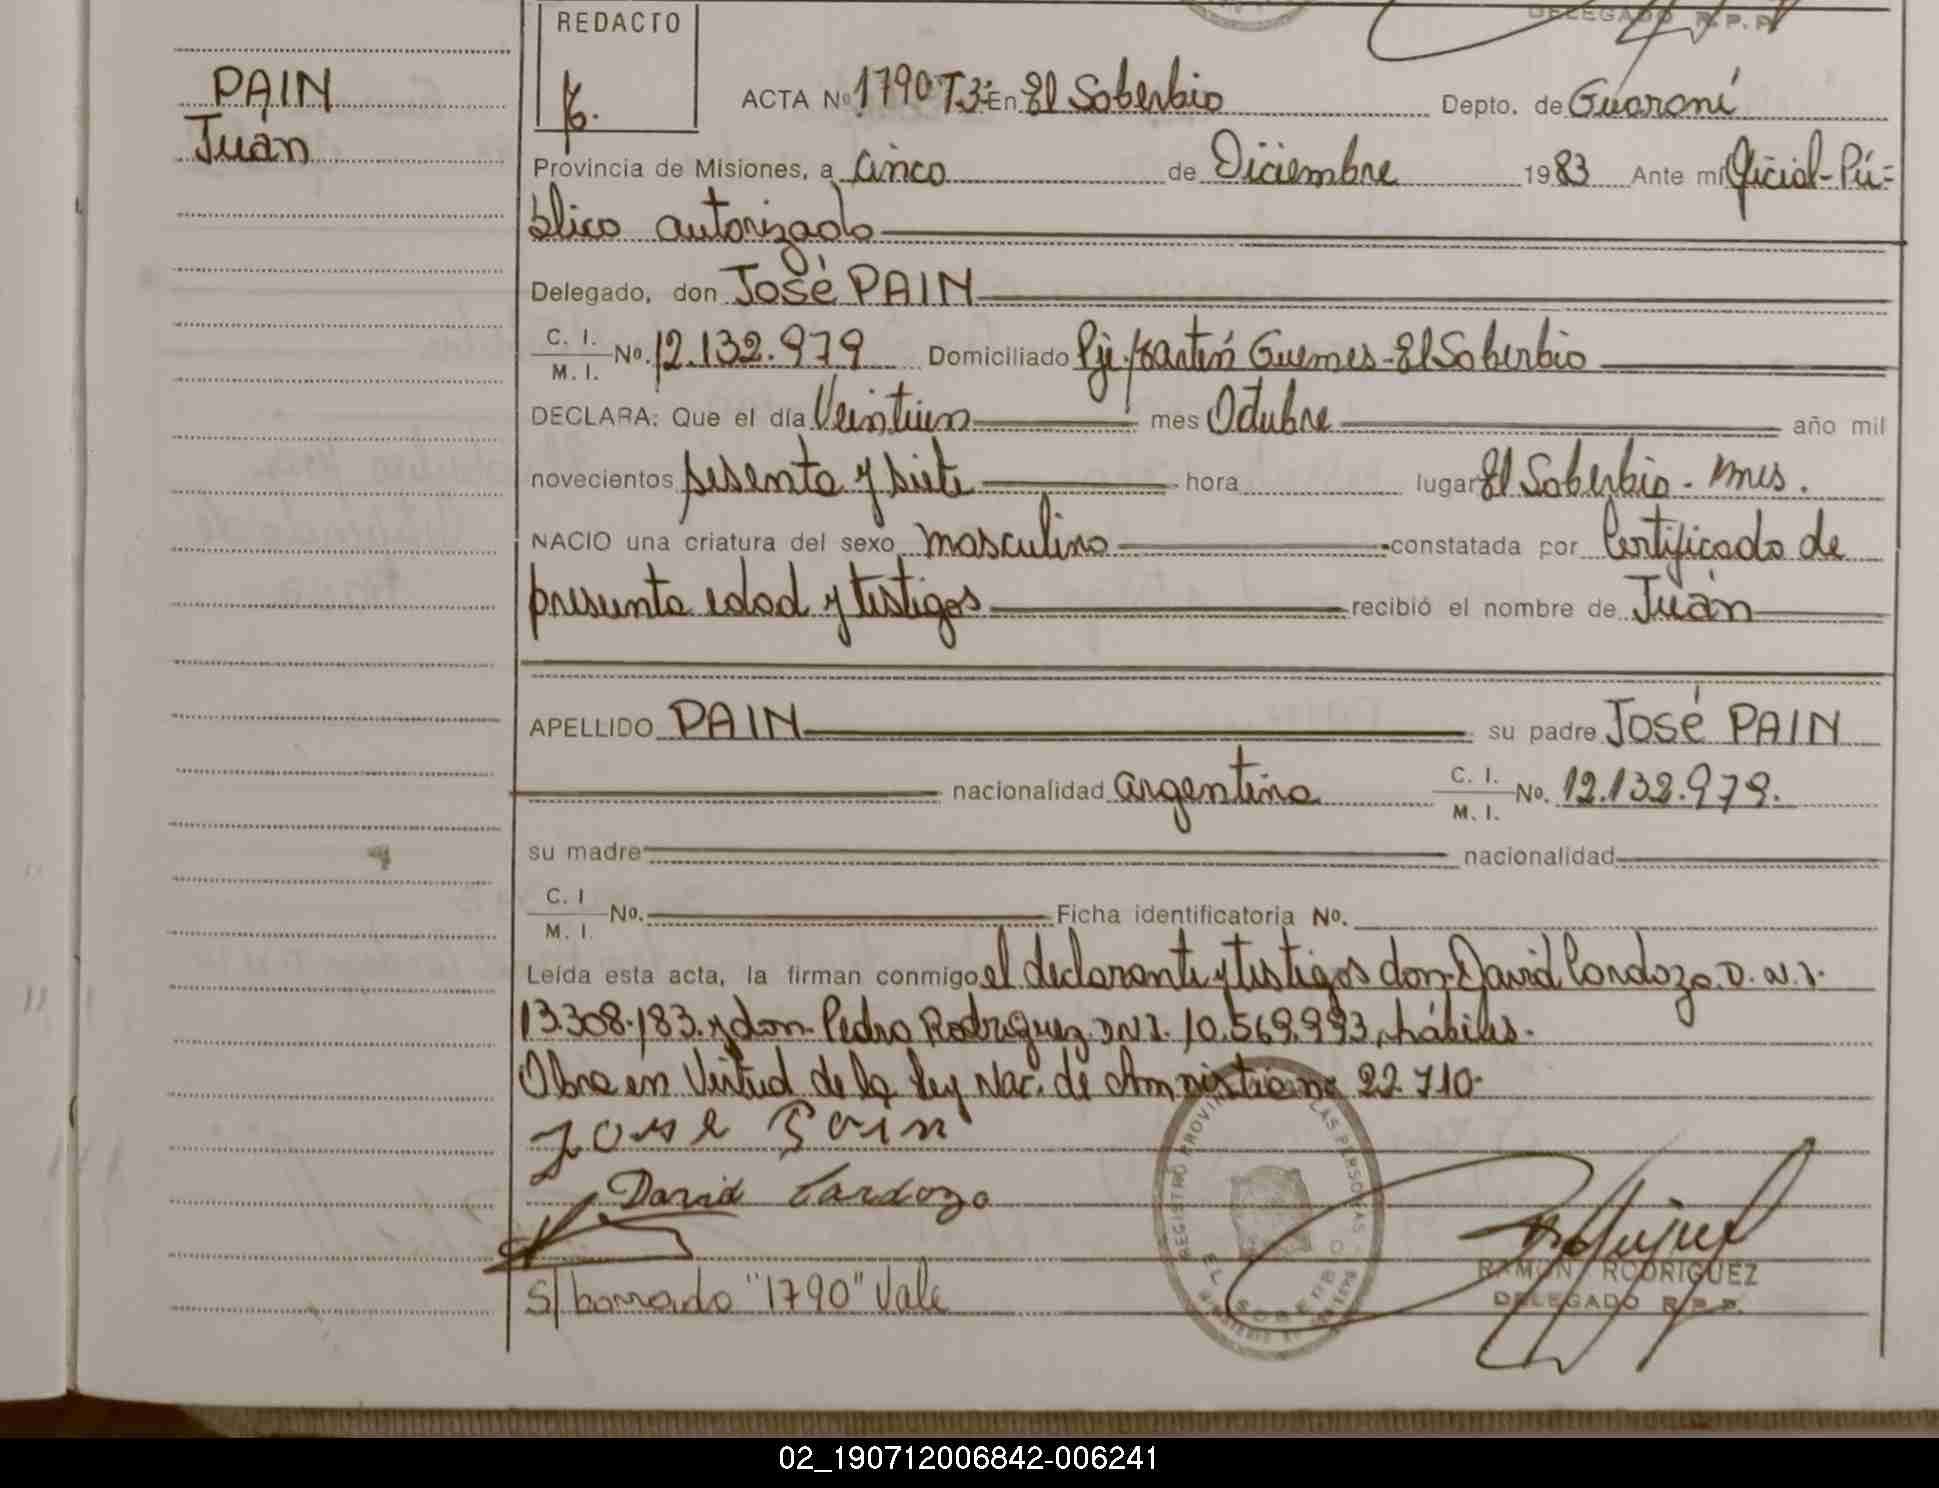 DELEGADO R.P.P.
REDACTO
PAIN
Juan
ACTA Nº 1790 T3º En El Soberbio Depto. de Guaraní
Provincia de Misiones, a cinco de Diciembre 1983 Ante mi Oficial-Pú=
blico autorizado
Delegado, don José PAIN
C. I. M. I. Nº. 12.132.979 Domiciliado Pje. Martín Guemes-El Soberbio
DECLARA: Que el día Veintiun mes Octubre año mil
novecientos sesenta y siete hora lugar El Soberbio - Mnes.
NACIO una criatura del sexo masculino constatada por Certificado de
presunta edad y testigos recibió el nombre de Juan
APELLIDO PAIN su padre José PAIN
nacionalidad argentina C. I. M. I. Nº. 12.132.979.
su madre nacionalidad
C. I M. I. Nº. Ficha identificatoria Nº.
Leída esta acta, la firman conmigo el declarante y testigos don-David Cardozo D.N.I.
13.308.183 y don-Pedro Rodriguez DNI. 10.569.993, hábiles.
Obra en Virtud de la ley Nac. de Amnistia nº 22.710-
Jose Pain
David Cardozo
S/ borrado "1790" Vale
REGISTRO PROVINCIAL LAS PERSONAS
EL SOBERBIO
RAMON RODRIGUEZ
DELEGADO R.P.P.
02_190712006842-006241